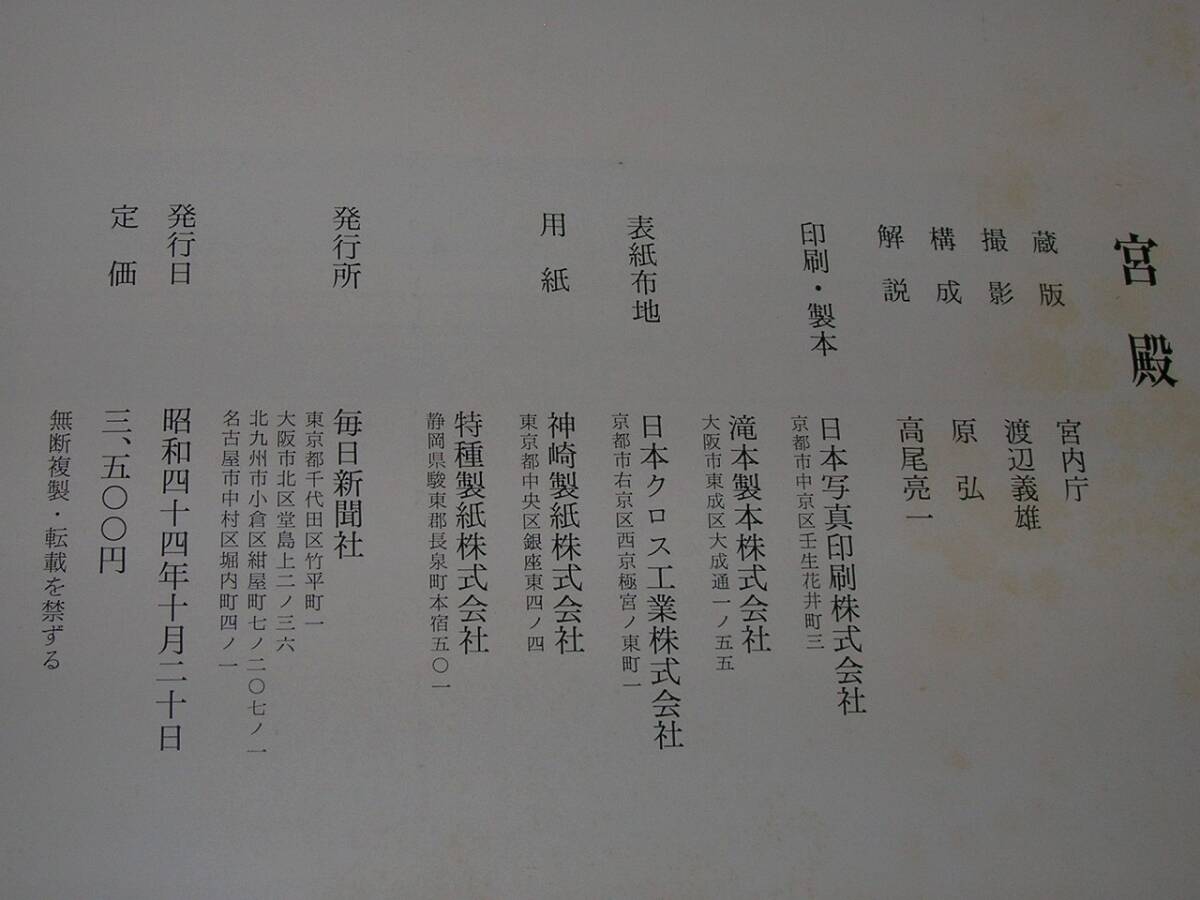 宮殿
蔵版 宮内庁
撮影 渡辺義雄
構成 原弘
解説 高尾亮一
印刷・製本 日本写真印刷株式会社
京都市中京区壬生花井町三
滝本製本株式会社
大阪市東成区大成通一ノ五五
表紙布地 日本クロス工業株式会社
京都市右京区西京極宮ノ東町一
用紙 神崎製紙株式会社
東京都中央区銀座東四ノ四
特種製紙株式会社
静岡県駿東郡長泉町本宿五〇一
発行所 毎日新聞社
東京都千代田区竹平町一
大阪市北区堂島上二ノ三六
北九州市小倉区紺屋町七ノ二〇七ノ一
名古屋市中村区堀内町四ノ一
発行日 昭和四十四年十月二十日
定価 三、五〇〇円
無断複製・転載を禁ずる